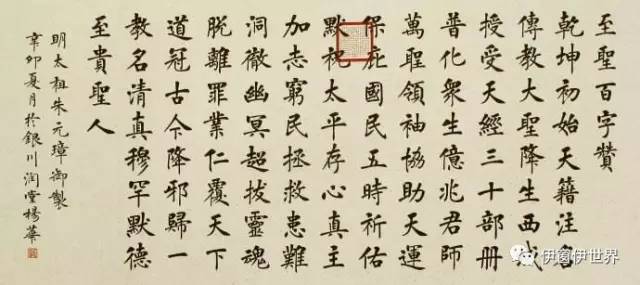 至聖百字贊
乾坤初始天籍注名
傳教大聖降生西域
授受天經三十部册
普化衆生億兆君師
萬聖領袖協助天運
保庇國民五時祈佑
默祝太平存心真主
加志窮民拯救患難
洞徹幽冥超拔靈魂
脫離罪業仁覆天下
道冠古今降邪歸一
教名清真穆罕默德
至貴聖人
明太祖朱元璋御製
辛卯夏月於銀川潤堂楊華
伊窗伊世界